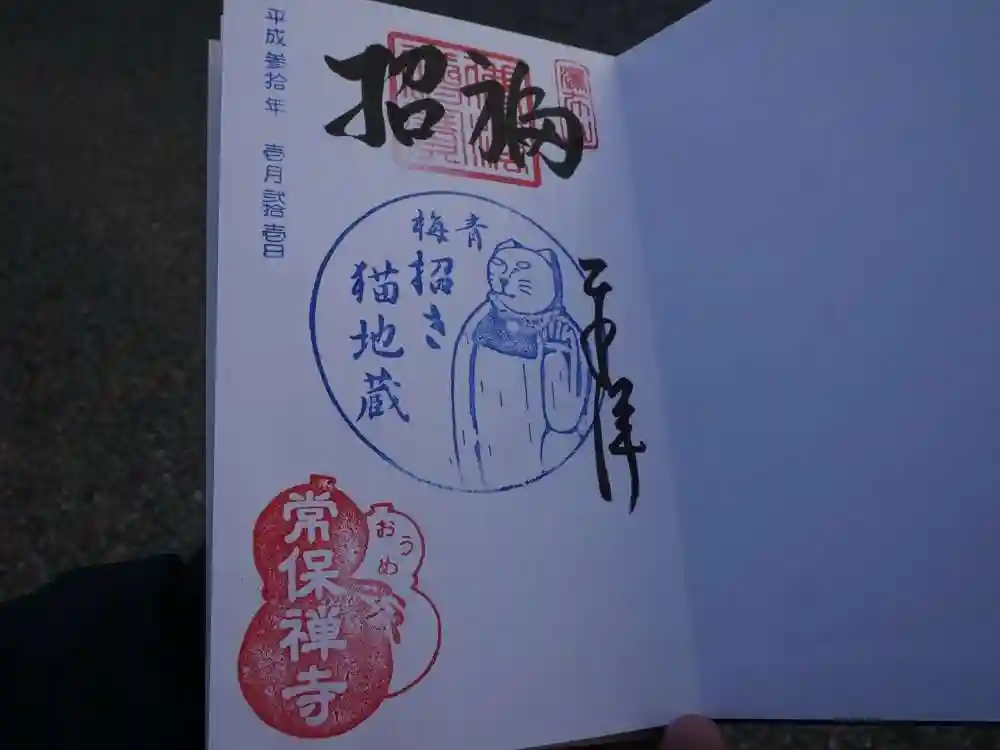 奉拝
招福
青梅
招き
猫地蔵
平成参拾年 壱月弐拾壱日
常保禅寺
おうめ